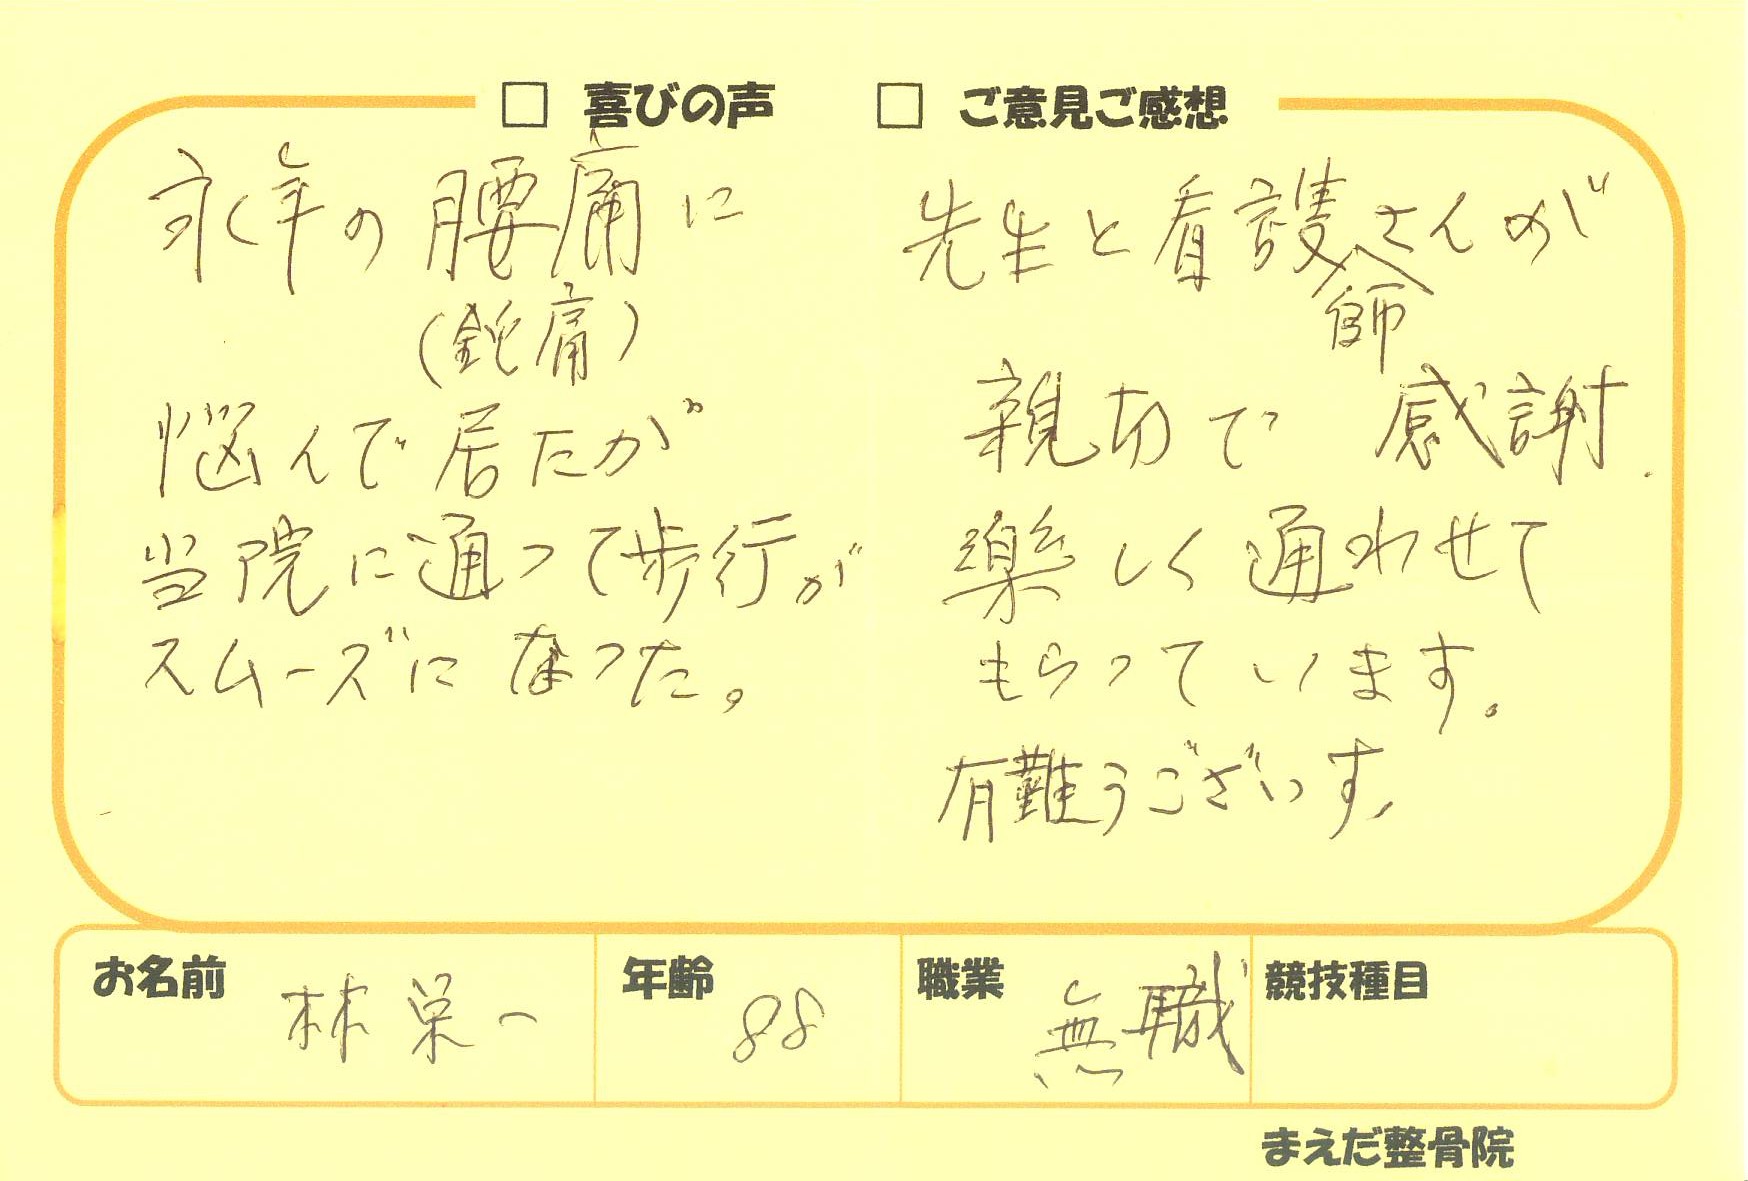 □ 喜びの声
永年の腰痛に
(鈍痛)
悩んで居たが
当院に通って歩行が
スムーズになった。
□ ご意見ご感想
先生と看護師さんが
親切で 感謝.
楽しく通わせて
もらっています。
有難うございす、
お名前 林栄一
年齢 88
職業 無職
競技種目
まえだ整骨院